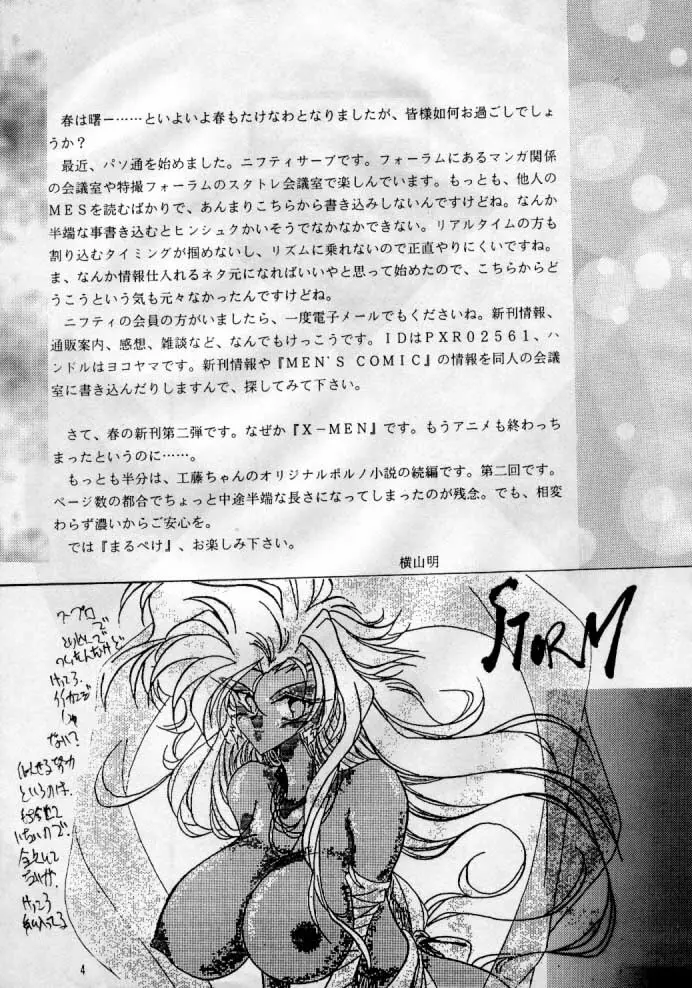 春は曙ー……といよいよ春もたけなわとなりましたが、皆様如何お過ごしでしょ
うか？
最近、パソ通を始めました。ニフティサーブです。フォーラムにあるマンガ関係
の会議室や特撮フォーラムのスタトレ会議室で楽しんでいます。もっとも、他人の
ＭＥＳを読むばかりで、あんまりこちらから書き込みしないんですけどね。なんか
半端な事書き込むとヒンシュクかいそうでなかなかできない。リアルタイムの方も
割り込むタイミングが掴めないし、リズムに乗れないので正直やりにくいですね。
ま、なんか情報仕入れるネタ元になればいいやと思って始めたので、こちらからど
うこうという気も元々なかったんですけどね。
ニフティの会員の方がいましたら、一度電子メールでもくださいね。新刊情報、
通販案内、感想、雑談など、なんでもけっこうです。ＩＤはＰＸＲ０２５６１、ハ
ンドルはヨコヤマです。新刊情報や『ＭＥＮ'Ｓ ＣＯＭＩＣ』の情報を同人の会議
室に書き込んだりしますんで、探してみて下さい。
さて、春の新刊第二弾です。なぜか『Ｘ－ＭＥＮ』です。もうアニメも終わっち
まったというのに……。
もっとも半分は、工藤ちゃんのオリジナルポルノ小説の続編です。第二回です。
ページ数の都合でちょっと中途半端な長さになってしまったのが残念。でも、相変
わらず濃いからご安心を。
では『まるぺけ』、お楽しみ下さい。
横山明
STORM
ない？
というのは、
4